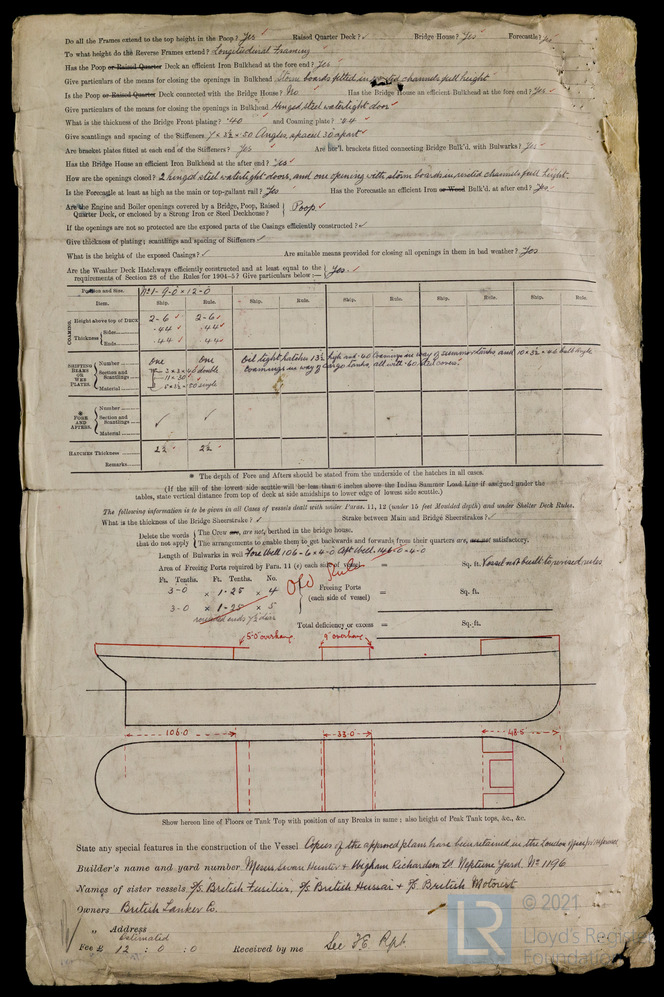 Do all the Frames extend to the top height in the Poop? Yes ✓ Raised Quarter Deck? ✓ Bridge House? Yes Forecastle? Yes
To what height do the Reverse Frames extend? Longitudinal Framing
Has the Poop or Raised Quarter Deck an efficient Iron Bulkhead at the fore end? Yes ✓
Give particulars of the means for closing the openings in Bulkhead Storm boards fitted in riveted channels full height
Is the Poop or Raised Quarter Deck connected with the Bridge House? No Has the Bridge House an efficient Bulkhead at the fore end? Yes ✓
Give particulars of the means for closing the openings in Bulkhead Hinged steel watertight door ✓
What is the thickness of the Bridge Front plating? .40 and Coaming plate? .44 ✓
Give scantlings and spacing of the Stiffeners 7 x 3½ x .50 Angles, spaced 30 apart ✓
Are bracket plates fitted at each end of the Stiffeners? Yes ✓ Are hor'l. brackets fitted connecting Bridge Bulk'd. with Bulwarks? Yes ✓
Has the Bridge House an efficient Iron Bulkhead at the after end? Yes ✓
How are the openings closed? 2 hinged steel watertight doors, and one opening with storm boards in riveted channels full height.
Is the Forecastle at least as high as the main or top-gallant rail? Yes Has the Forecastle an efficient Iron or Wood Bulk'd. at after end? Yes ✓
Are the Engine and Boiler openings covered by a Bridge, Poop, Raised
Quarter Deck, or enclosed by a Strong Iron or Steel Deckhouse? Poop ✓
If the openings are not so protected are the exposed parts of the Casings efficiently constructed? ✓
Give thickness of plating; scantlings and spacing of Stiffeners ✓
What is the height of the exposed Casings? ✓ Are suitable means provided for closing all openings in them in bad weather? Yes
Are the Weather Deck Hatchways efficiently constructed and at least equal to the
requirements of Section 28 of the Rules for 1904-5? Give particulars below:— Yes. ✓
Position and Size. No 1 - 9-0 x 12-0
Item. Ship. Rule. Ship. Rule. Ship. Rule. Ship. Rule. Ship. Rule.
COAMING. Height above top of DECK 2-6 ✓ 2-6 ✓
Thickness Sides .44 ✓ .44 ✓
Ends .44 ✓ .44 ✓
SHIFTING BEAMS OR WEB PLATES. Number one one Oil tight hatches 13½ high and .40 Coamings in way of summer tanks, and 10 x 3½ x .46 bulb angle
Section and Scantlings 3 x 3 x .40 double Coamings in way of cargo tanks, all with .60 steel covers.
Material
* FORE AND AFTERS. Number
Section and Scantlings ✓ ✓
Material
HATCHES Thickness 2½ 2½
Remarks
* The depth of Fore and Afters should be stated from the underside of the hatches in all cases.
(If the sill of the lowest side scuttle will be less than 6 inches above the Indian Summer Load Line if assigned under the
tables, state vertical distance from top of deck at side amidships to lower edge of lowest side scuttle.)
The following information is to be given in all Cases of vessels dealt with under Paras. 11, 12 (under 15 feet Moulded depth) and under Shelter Deck Rules.
What is the thickness of the Bridge Sheerstrake? ✓ Strake between Main and Bridge Sheerstrakes? ✓
Delete the words The Crew are, are not, berthed in the bridge house.
that do not apply The arrangements to enable them to get backwards and forwards from their quarters are, are not satisfactory.
Length of Bulwarks in well Fore Well 106-6 x 4-0 Aft Well. 146-0 4-0
Area of Freeing Ports required by Para. 11 (e) each side of vessel = Sq. ft. Vessel not built to revised rules
Ft. Tenths. Ft. Tenths. No. Old Rule
3-0 x 1-25 x 4 Freeing Ports = Sq. ft.
3-0 x 1-25 x 5 (each side of vessel)
rounded ends 7½ diar
Total deficiency or excess = Sq. ft.
5.0 overhang 9" overhang
106.0 33.0 48.5
Show hereon line of Floors or Tank Top with position of any Breaks in same; also height of Peak Tank tops, &c., &c.
State any special features in the construction of the Vessel. Copies of the approved plans have been retained in the London Office for reference
Builder's name and yard number Messrs Swan Hunter & Wigham Richardson Ld. Neptune Yard, No 1196
Names of sister vessels S/S. British Fusilier, S/S British Hussar & S/S British Motorist
Owners British Tanker Co.
„ Address
Estimated
Fee £ 12 : 0 : 0 Received by me See F.E. Rpt
LR © 2021
Lloyd's Register
Foundation